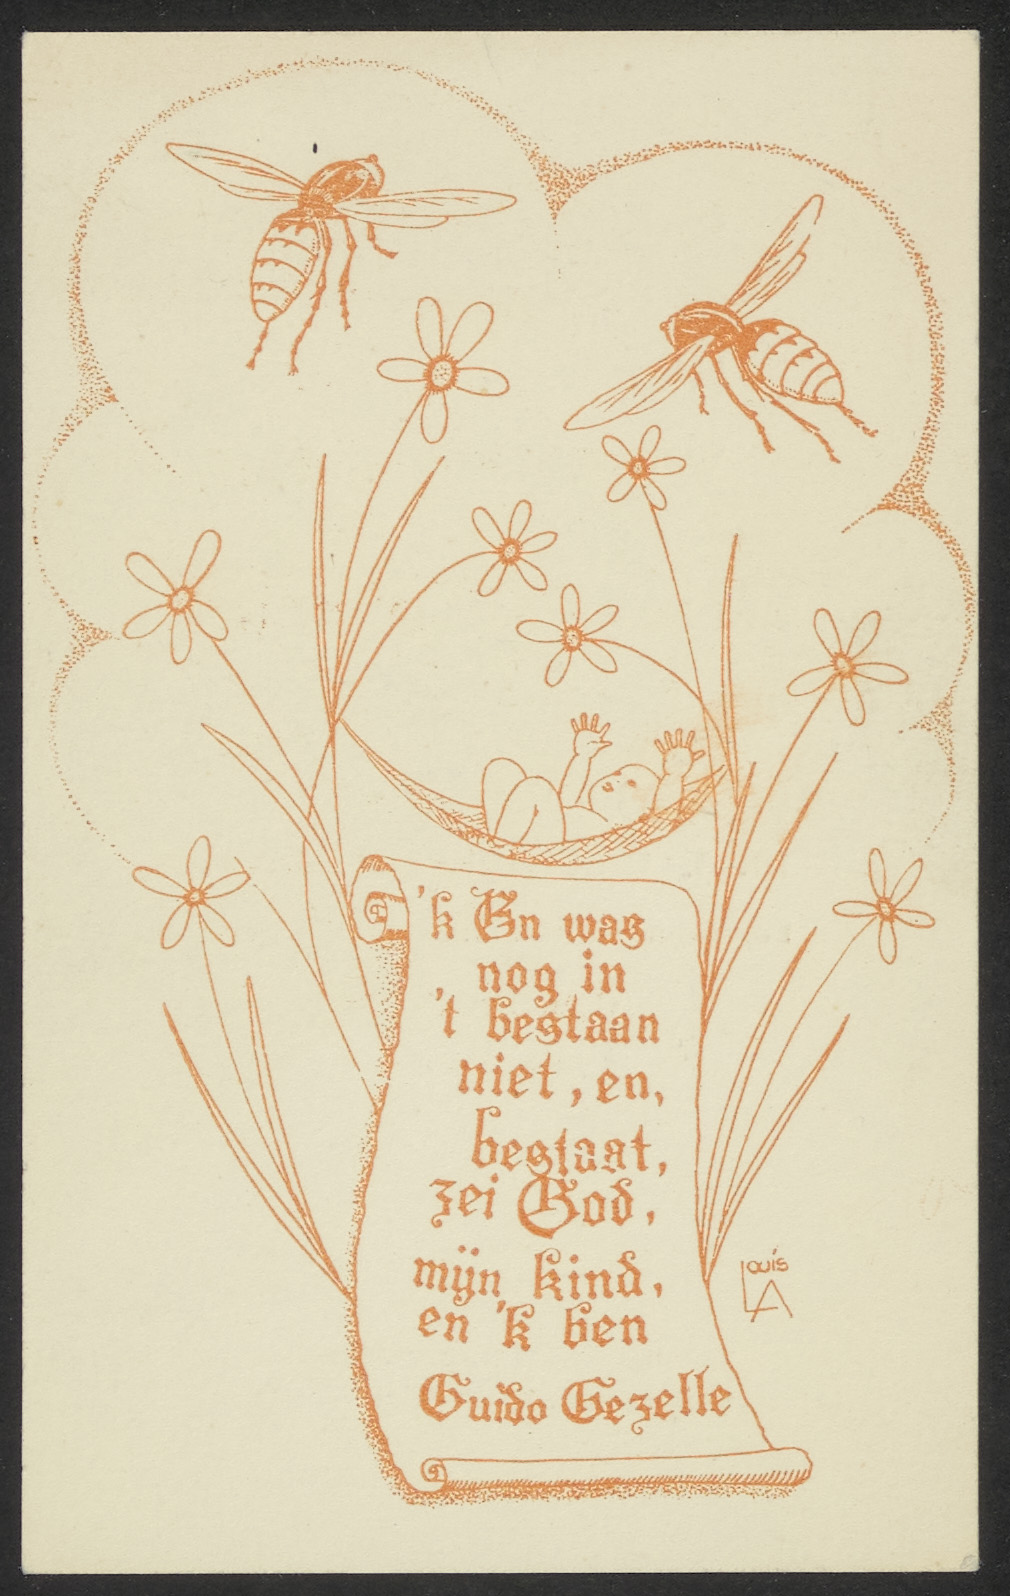 'k En was
nog in
't bestaan
niet, en,
bestaat,
zei God,
mijn kind,
en 'k ben
Guido Gezelle
Louis
LA